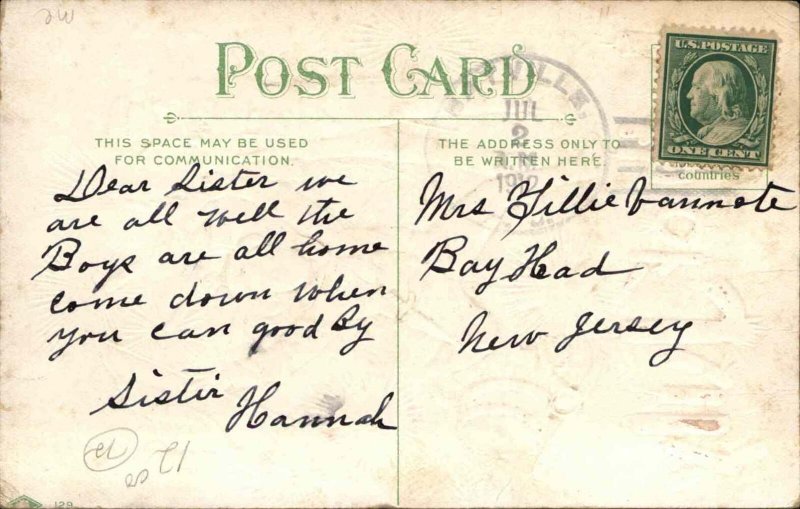 POST CARD
THIS SPACE MAY BE USED
FOR COMMUNICATION.
Dear Sister we
are all well the
Boys are all home
come down when
you can good By
Sistir Hannah
129
THE ADDRESS ONLY TO
BE WRITTEN HERE.
JUL
2
U.S. POSTAGE
ONE CENT
countries
Mrs Tillie Vannote
Bay Head
New Jersey